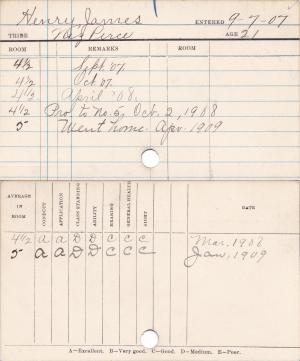 Henry James ENTERED 9-7-07
TRIBE Nez Perce AGE 21
ROOM REMARKS ROOM
4½ Sept. '07.
4½ Oct. '07.
4½ April '08.
4½ Pro. to No. 5, Oct. 2, 1908
5 Went home Apr. 1909
AVERAGE IN ROOM CONDUCT APPLICATION CLASS STANDING ABILITY HEARING GENERAL HEALTH SIGHT DATE
4½ A A D D C C C Mar. 1908
5 A A D D C C C Jan. 1909
A—Excellent. B—Very good. C—Good. D—Medium. E—Poor.